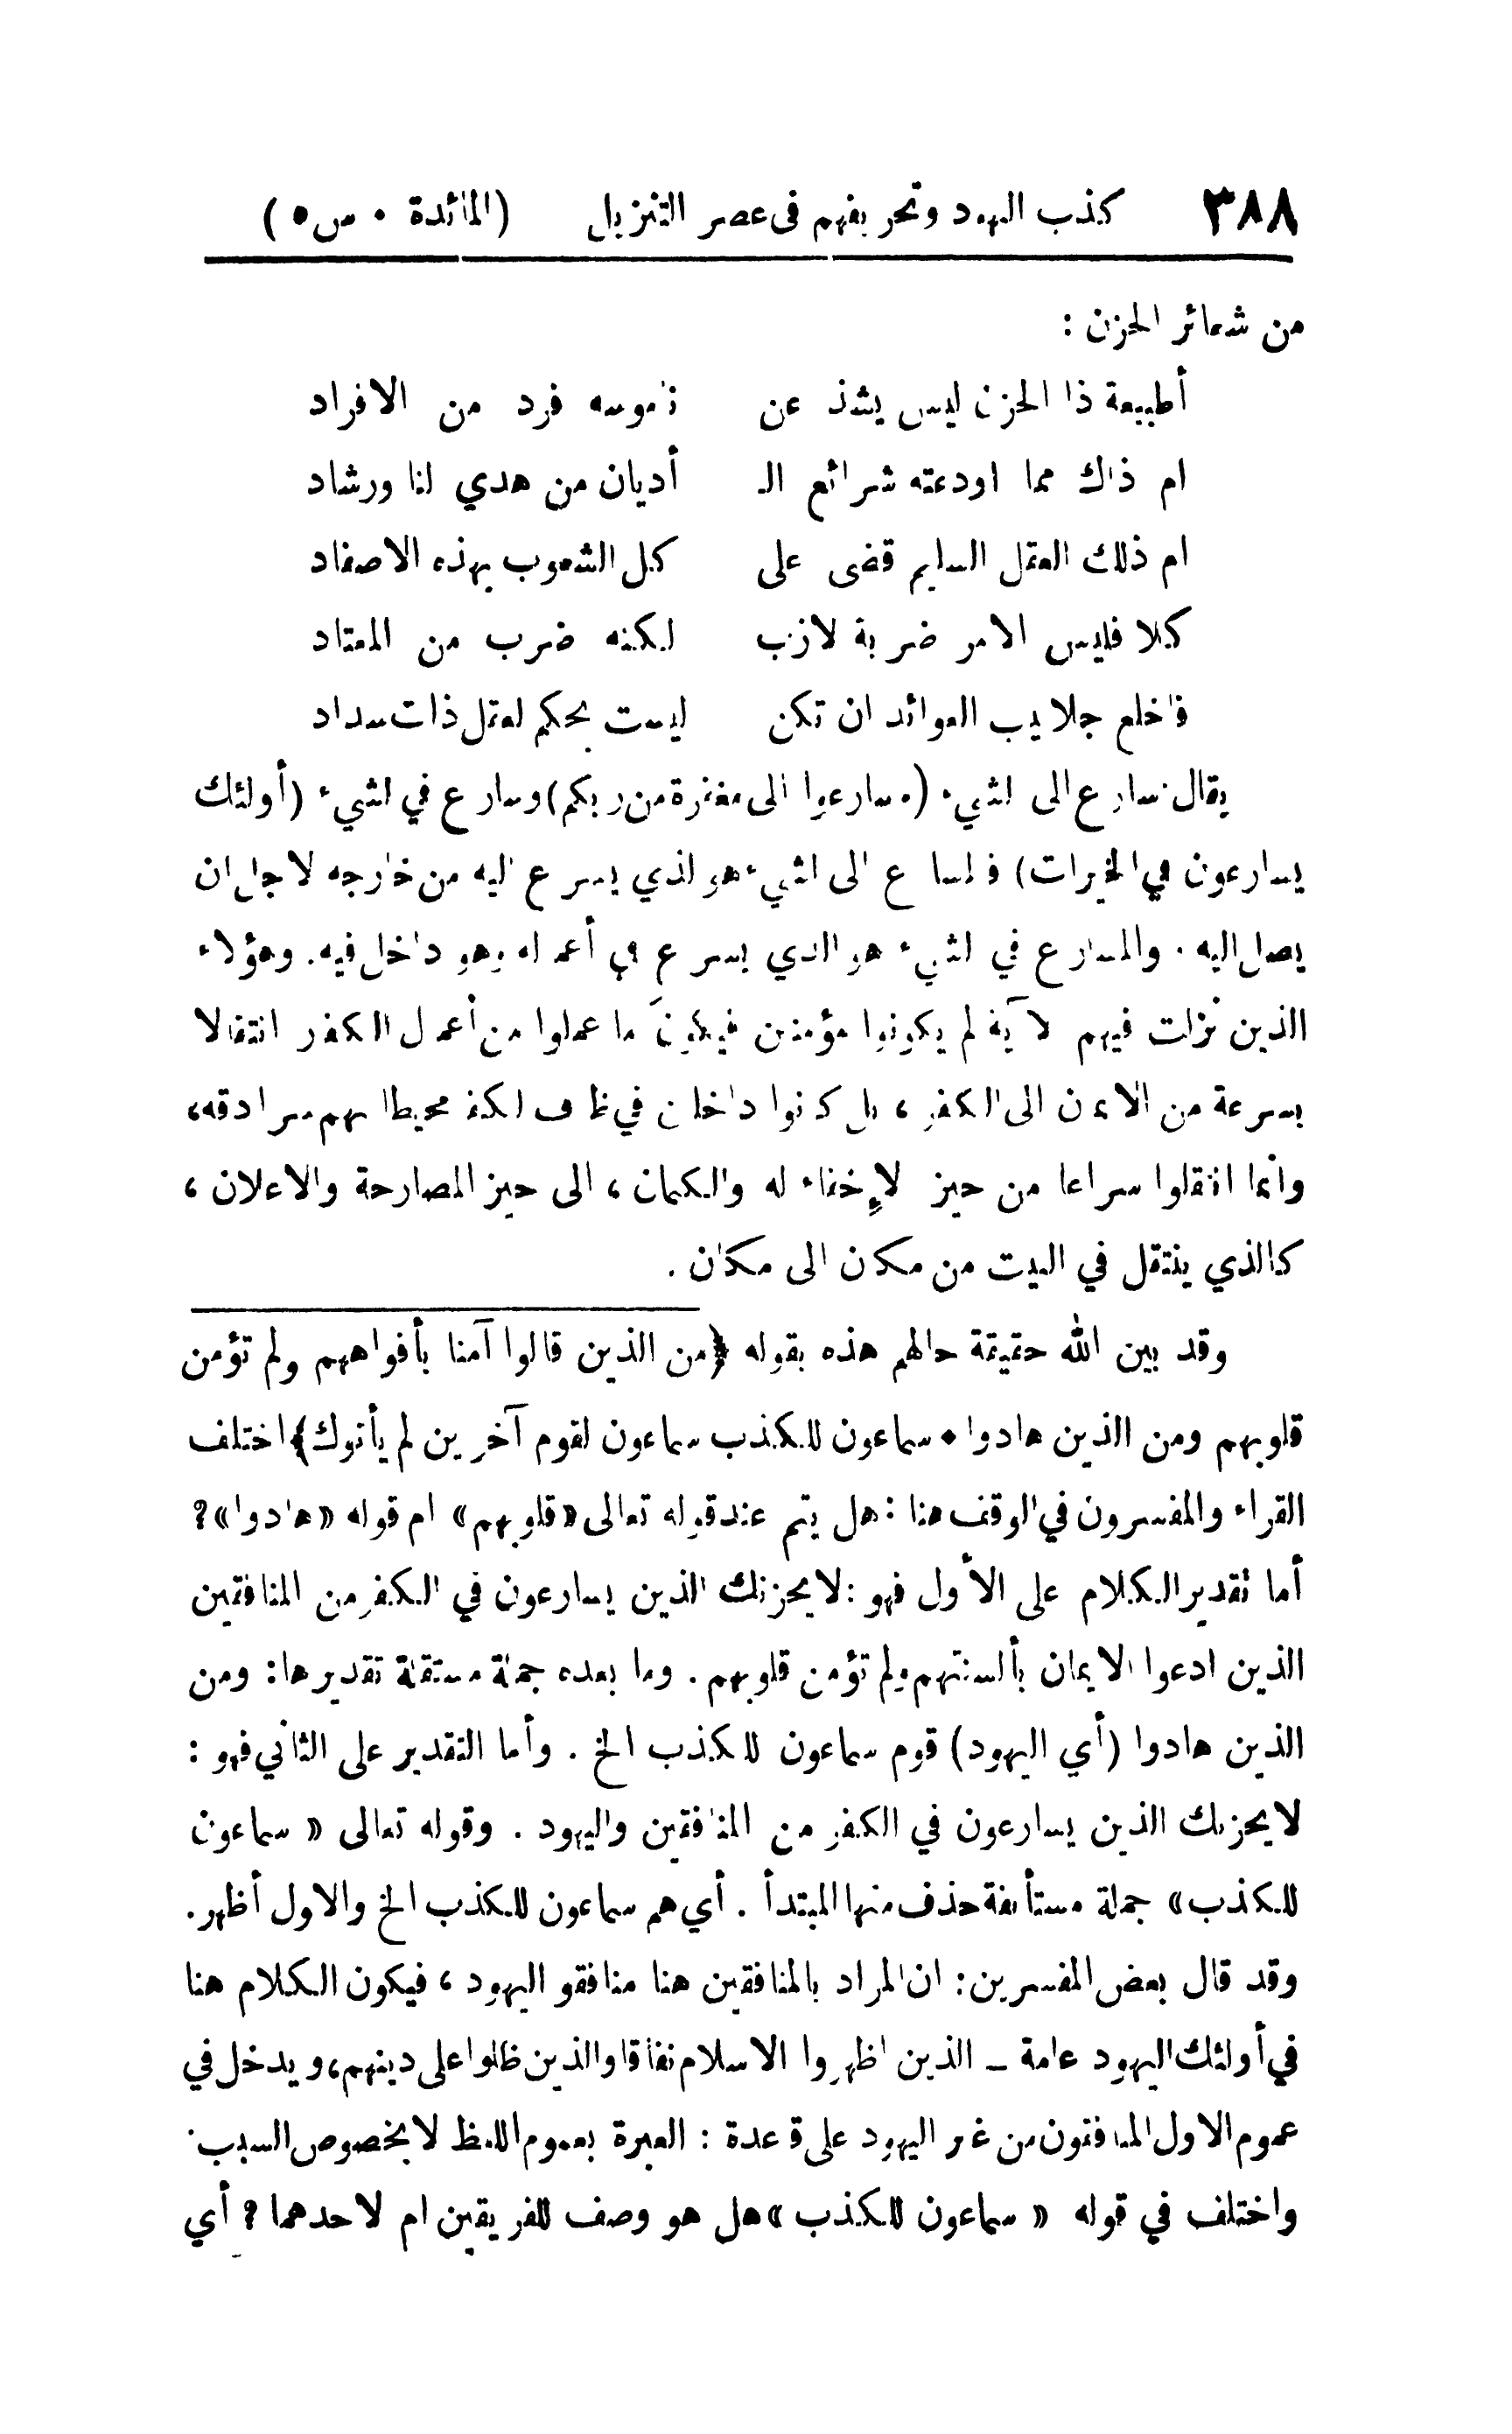 ٣٨٨ كذب اليهود وتحريفهم فى عصر التنزيل (المائدة ٠ س ٥)
من شعائر الحزن :
أطبيعة ذا الحزن ليس يشذ عن ناموسه فرد من الافراد
ام ذاك مما اودعته شرائع الـ أديان من هدي لنا ورشاد
ام ذلك العقل السليم قضى على كل الشعوب بهذه الاصفاد
كلا فليس الامر ضربة لازب لكنه ضرب من المعتاد
فاخلع جلابيب العوائد ان تكن ليست بحكم لعقل ذات سداد
يقال سارع الى الشيء (وسارعوا الى مغفرة من ربكم) وسارع في الشيء (أولئك
يسارعون في الخيرات) فالمسارع الى الشيء هو الذي يسرع اليه من خارجه لاجل ان
يصل اليه . والمسارع في الشيء هو الذي يسرع في أعماله وهو داخل فيه. وهؤلاء
الذين نزلت فيهم الآية لم يكونوا مؤمنين فيكون ما عملوا من أعمال الكفر انتقالا
بسرعة من الايمان الى الكفر ، بل كانوا داخلين في ظرف الكفر محيطا بهم سرادقه،
وانما انتقلوا سراعا من حيز الإخفاء له والكتمان ، الى حيز المصارحة والاعلان ،
كالذي ينتقل في البيت من مكان الى مكان .
وقد بين الله حقيقة حالهم هذه بقوله ﴿من الذين قالوا آمنا بأفواههم ولم تؤمن
قلوبهم ومن الذين هادوا ٠ سماعون للكذب سماعون لقوم آخرين لم يأتوك﴾ اختلف
القراء والمفسرون في الوقف هنا : هل يتم عند قوله تعالى «قلوبهم» ام قوله «هادوا»؟
أما تقدير الكلام على الأول فهو : لا يحزنك الذين يسارعون في الكفر من المنافقين
الذين ادعوا الايمان بألسنتهم ولم تؤمن قلوبهم . وما بعده جملة مستقلة تقديرها: ومن
الذين هادوا (أي اليهود) قوم سماعون للكذب الخ . وأما التقدير على الثاني فهو :
لا يحزنك الذين يسارعون في الكفر من المنافقين واليهود . وقوله تعالى « سماعون
للكذب» جملة مستأنفة حذف منها المبتدأ . أي هم سماعون للكذب الخ والاول أظهر.
وقد قال بعض المفسرين : ان المراد بالمنافقين هنا منافقو اليهود ، فيكون الكلام هنا
في أولئك اليهود عامة – الذين اظهروا الاسلام نفاقا والذين ظلوا على دينهم، ويدخل في
عموم الاول المنافقون من غير اليهود على قاعدة : العبرة بعموم اللفظ لا بخصوص السبب.
واختلف في قوله « سماعون للكذب » هل هو وصف للفريقين ام لاحدهما ؟ أي